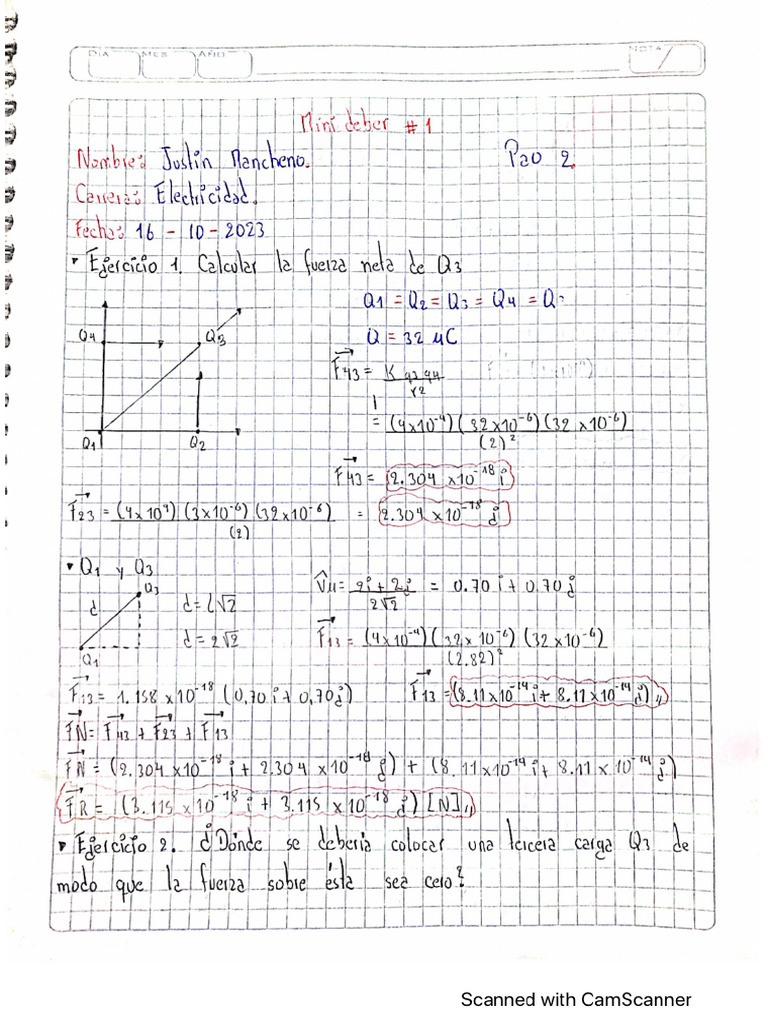 DIA MES AÑO NOTA
Mini deber #1
Nombre: Justin Mancheno. PaO 2.
Carrera: Electricidad.
Fecha: 16 - 10 - 2023
• Ejercicio 1. Calcular la fuerza neta de Q3
Q1 = Q2 = Q3 = Q4 = Q
Q = 32 μC
Q4 Q3
Q1 Q2
F43 = K q3 q4 / r2
= (4x10^-4)(32x10^-6)(32x10^-6) / (2)^2
F43 = 2.304 x10^-18 i
F23 = (4x10^4)(3x10^-6)(32x10^-6) / (2) = 2.304 x10^-18 j
• Q1 y Q3
Q3
d
Q1
d = l√2
d = 2√2
Vu = 2i + 2j / 2√2 = 0.70 i + 0.70 j
F13 = (4x10^-4)(32x10^-6)(32x10^-6) / (2.82)^2
F13 = 1.158 x10^-18 (0,70 i + 0,70 j) F13 = (8.11x10^-14 i + 8.11x10^-14 j)
FN = F43 + F23 + F13
FN = (2.304 x10^-18 i + 2.304 x10^-18 j) + (8.11x10^-14 i + 8.11x10^-14 j)
FR = (3.115 x10^-18 i + 3.115 x10^-18 j) [N]
• Ejercicio 2. ¿Dónde se debería colocar una tercera carga Q3 de
modo que la fuerza sobre ésta sea cero?
Scanned with CamScanner